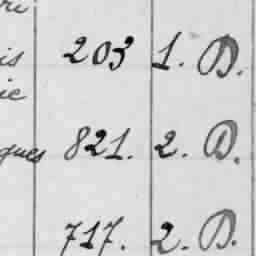 is 203 1. D.
ie
ques 821. 2. D.
717. 2. D.